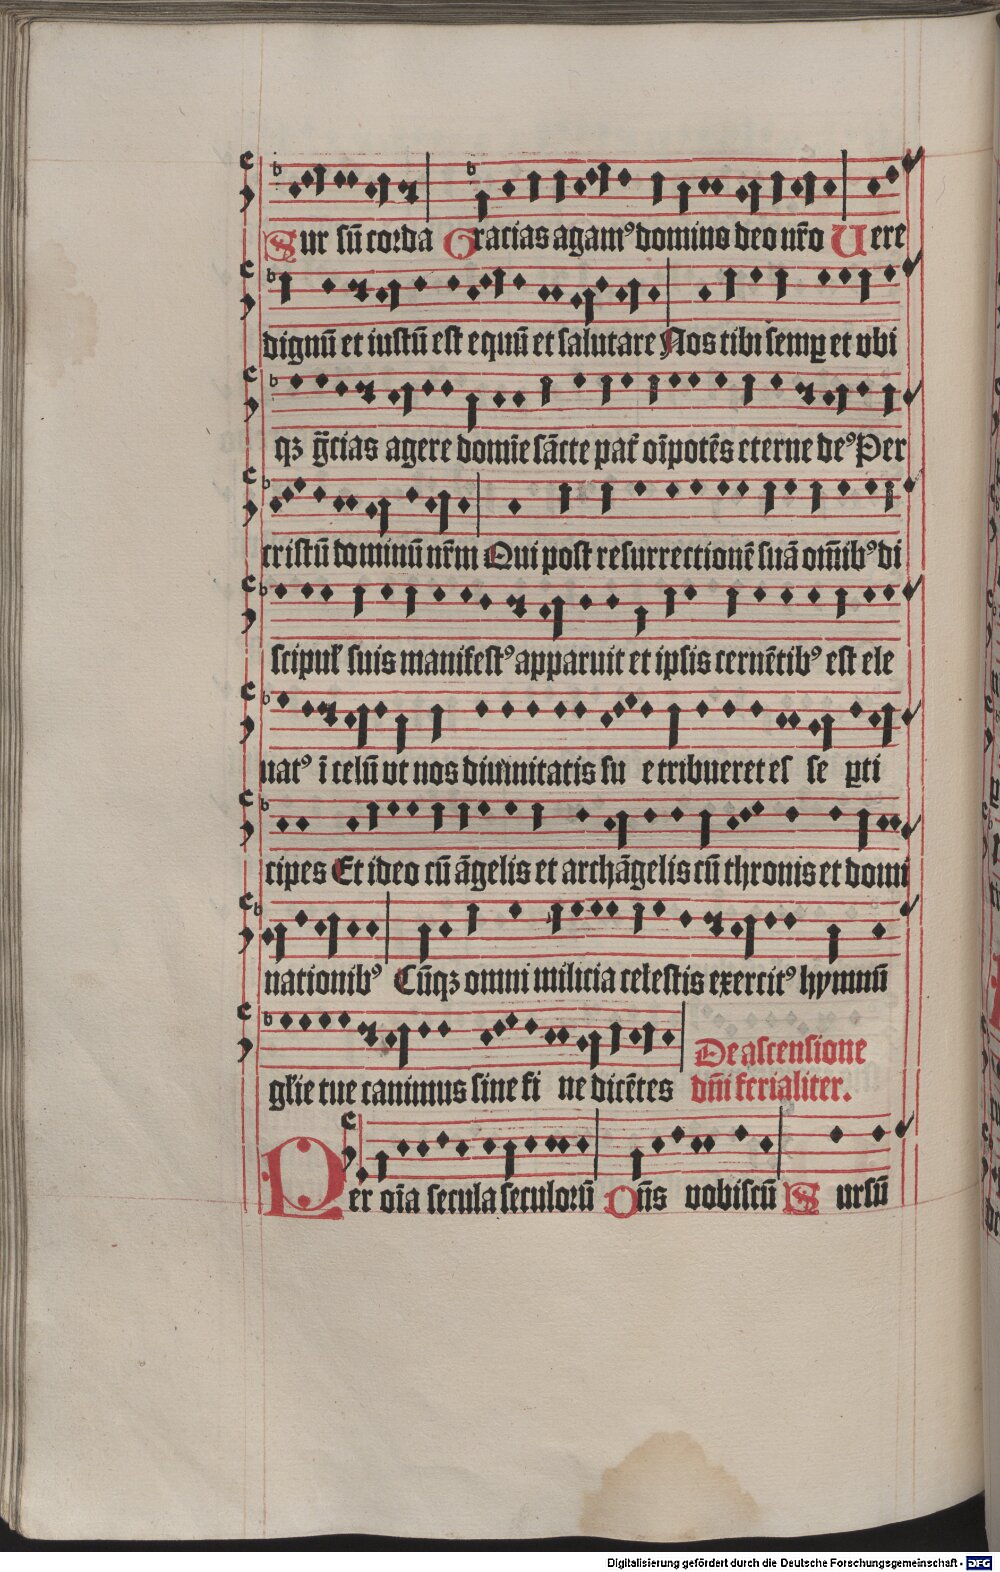 Sur sū corda Gracias agamꝰ domino deo nr̄o Uere
dignū et iustū est equū et salutare Nos tibi semꝑ et vbi
qꝫ gr̄cias agere domīe sācte pat̄ oīpotēs eterne deꝰ Per
cristū dominū nr̄m Qui post resurrectionē suā om̄ibꝰ di
scipul̄ suis manifestꝰ apparuit et ipsis cernētibꝰ est ele
uatꝰ ī celū vt nos diuinitatis su e tribueret es se ꝑti
cipes Et ideo cū āgelis et archāgelis cū thronis et domi
nationibꝰ Cūqꝫ omni milicia celestis exercitꝰ hymnū
gl̄ie tue canimus sine fi ne dicētes
De ascensione
dn̄i ferialiter.
Per oīa secula seculorū Dn̄s vobiscū S ursū
Digitalisierung gefördert durch die Deutsche Forschungsgemeinschaft - DFG